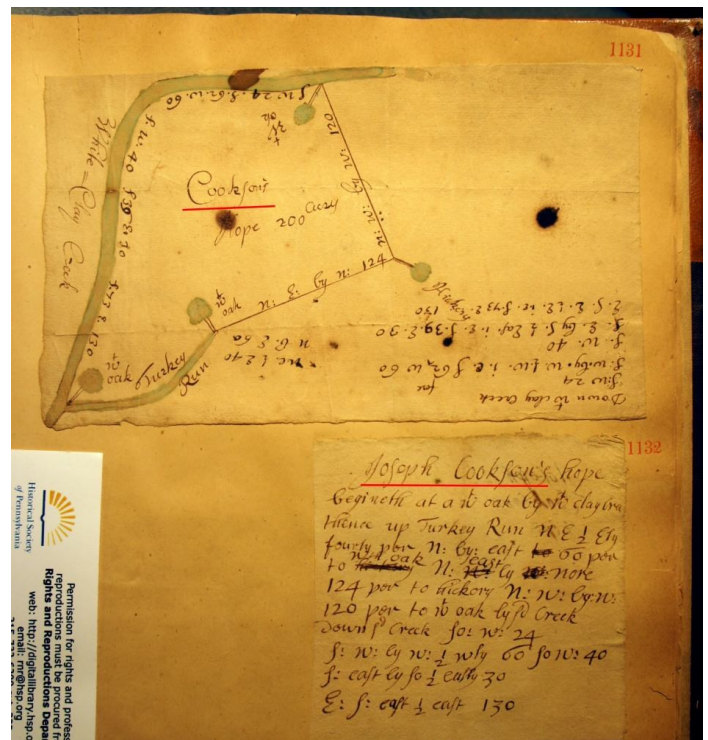 1131
S. W. 24 S. 62. W. 60
wt oak
n: w: by w: 120
S. W. 40 S 39 E. 30
S 73 E. 130
White = Clay Creek
Cookson's
Hope 200 Acres
n: E: by n: 124
Hickory
wt oak
n E. E 60
n E. ½ E 40
wt oak
Turkey Run
Down wt clay Creek
S: W 24
S. w. by. w. ½ w. i. e S 62 w 60
S. W. 40
S. E. by S. ½ East. i. e. S. 39. E. 30
E. S. E. ½ E. i.e. S 73. E. 130
1132
Joseph Cookson's Hope
begineth at a wt oak by wt clay
thence up Turkey Run N E ½ Ely
fourty per, N: by: east 60 per
to wt oak N: east by nore
124 per to hickory N: w: by: w:
120 per to wt oak by sd Creek
Down sd Creek so: w: 24
S: w: by w: ½ wly 60 so w: 40
S: east by so ½ eastly 30
E: S: east ½ east 130
Historical Society
of Pennsylvania
Permission for rights and
reproductions must be procured
Rights and Reproductions
web: http://digitallibrary.hsp.o
email: rnr@hsp.org